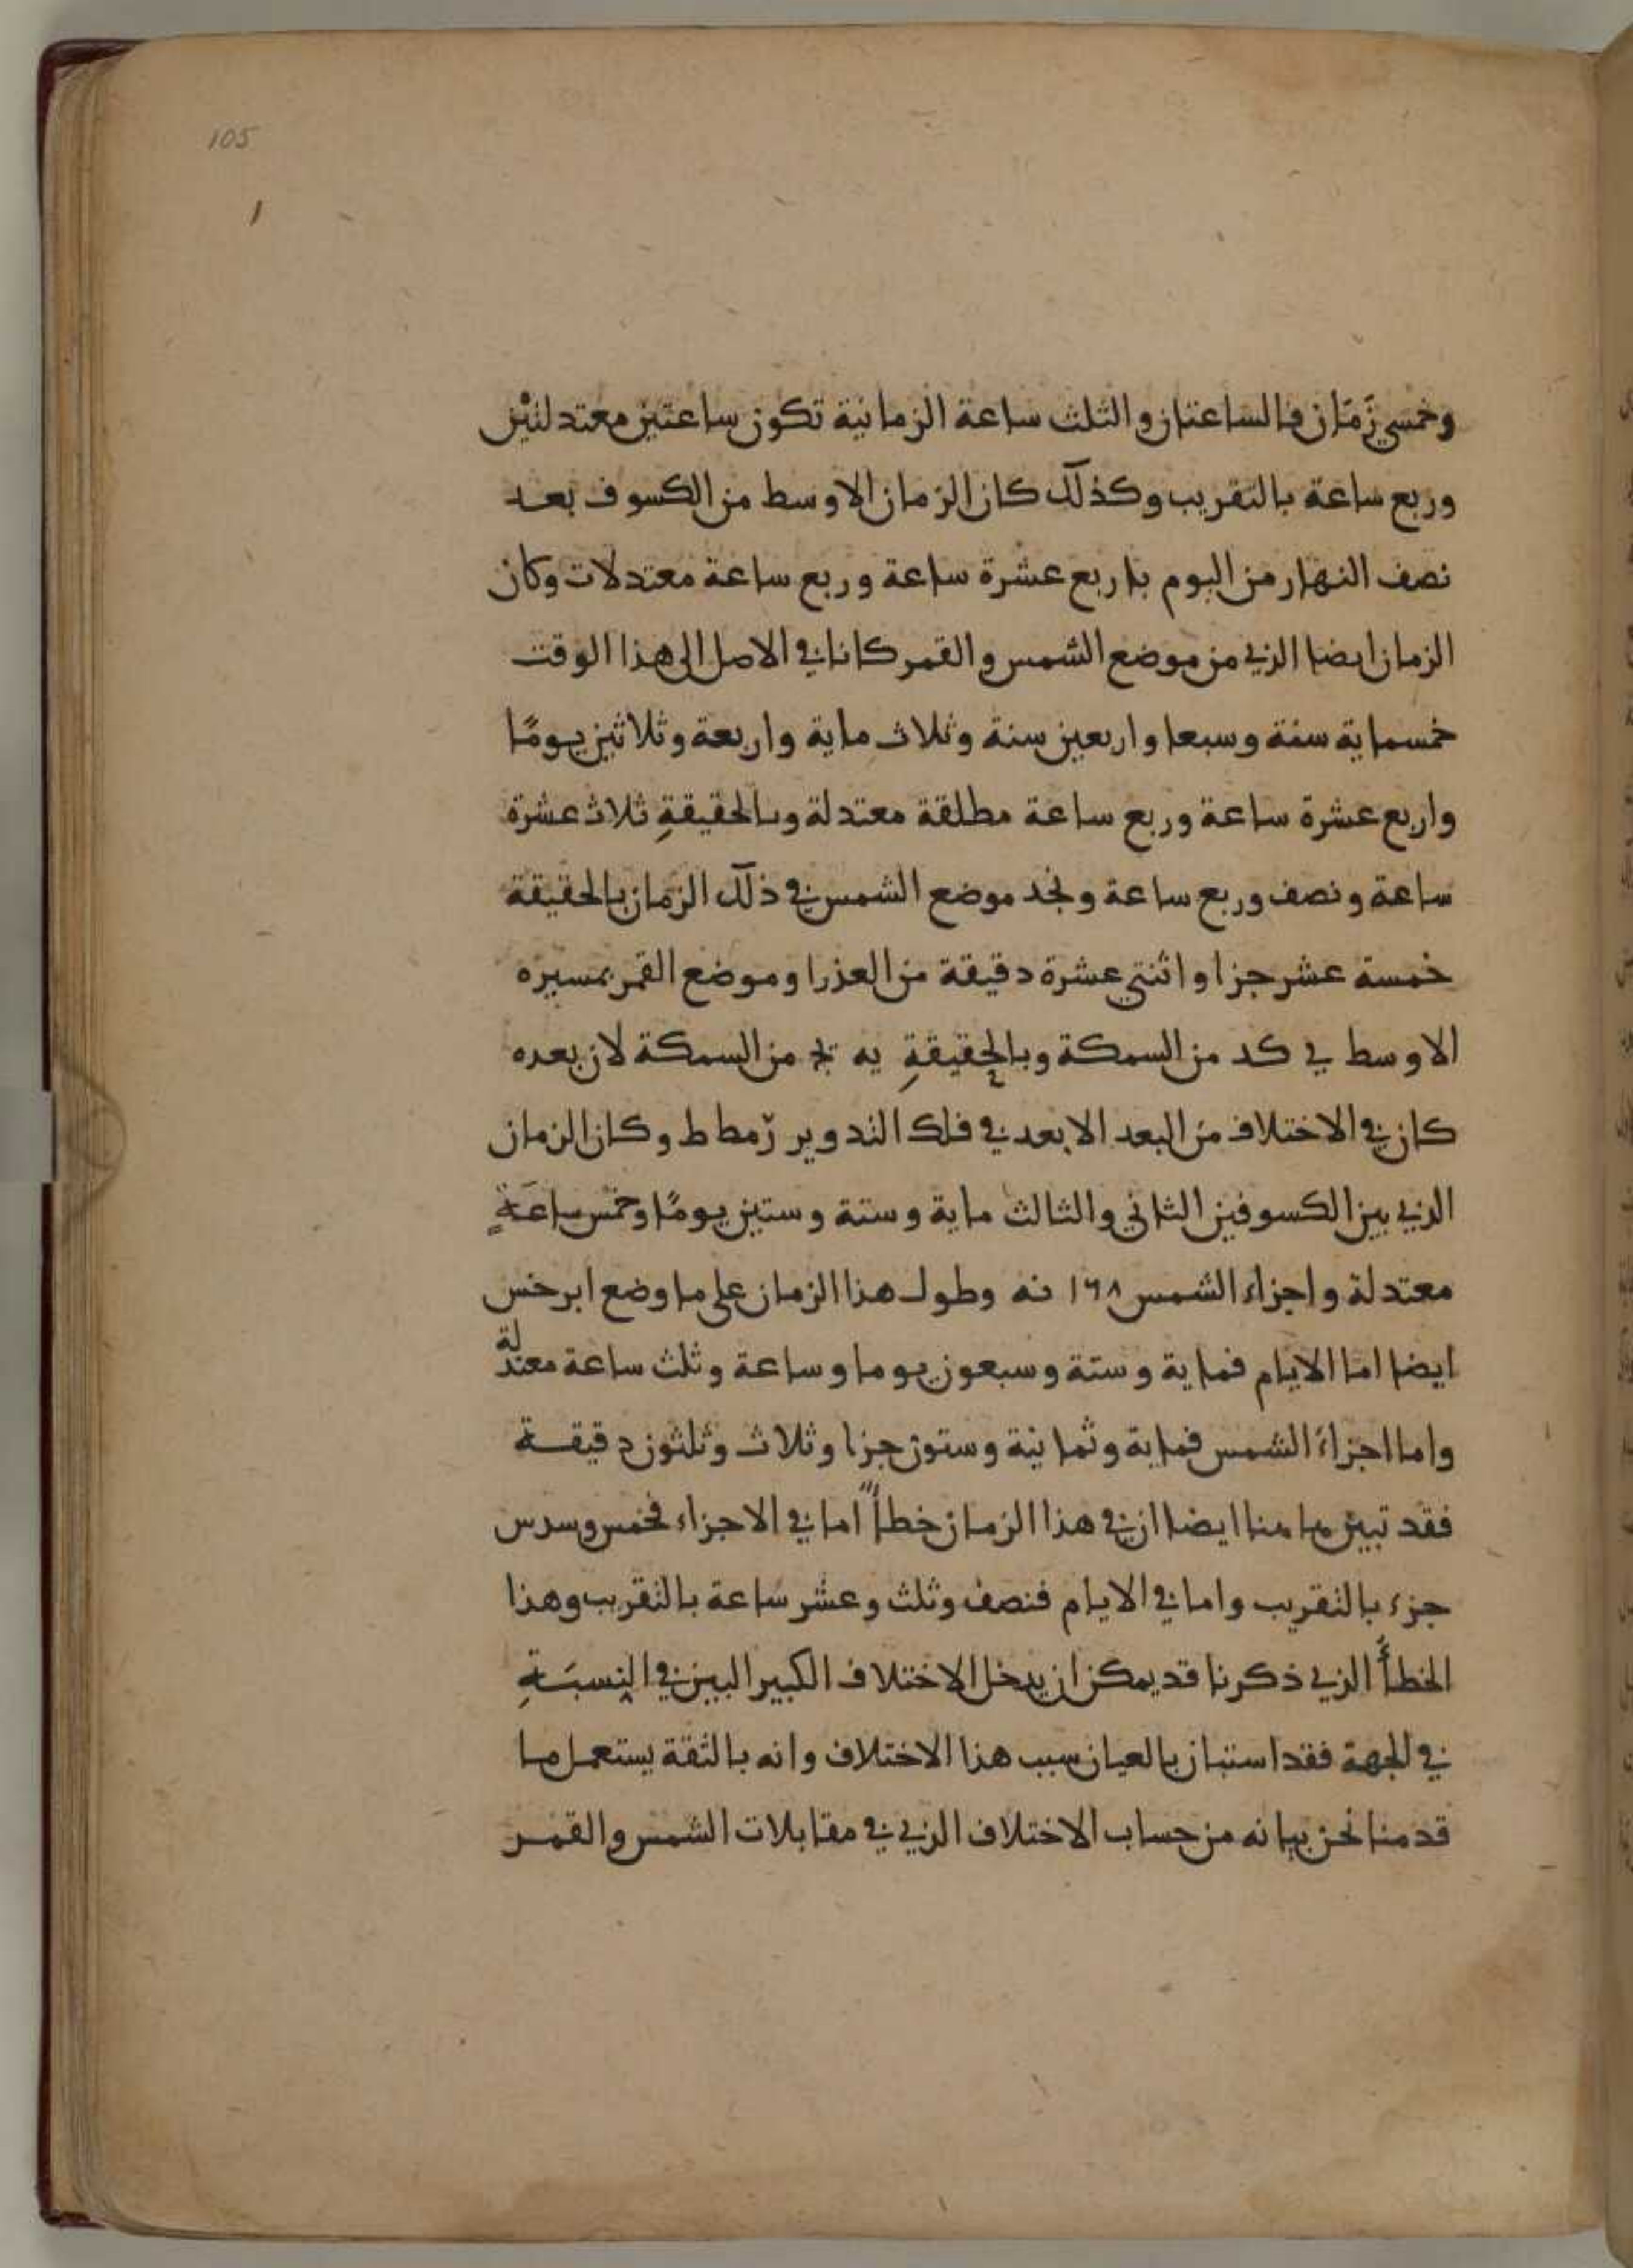 105
1
وخمسي زَمَان فالساعتان والثلث ساعة الزمانية تكون ساعتين معتدلتين
وربع ساعة بالتقريب وكذلك كان الزمان الاوسط من الكسوف بعد
نصف النهار من اليوم باربع عشرة ساعة وربع ساعة معتدلات وكان
الزمان ايضا الذي من موضع الشمس والقمر كانا في الاصل الى هذا الوقت
خمسماية سنة وسبعا واربعين سنة وثلاث ماية واربعة وثلاثين يومًا
واربع عشرة ساعة وربع ساعة مطلقة معتدلة وبالحقيقةِ ثلاث عشرة
ساعة ونصف وربع ساعة ونجد موضع الشمس في ذلك الزمان بالحقيقة
خمسة عشر جزا واثنتي عشرة دقيقة من العذرا وموضع القمر بمسيره
الاوسط في كد من السمكة وبالحقيقةِ يه يج من السمكة لان بعده
كان في الاختلاف من البعد الابعد في فلك التدوير رمط ط وكان الزمان
الذي بين الكسوفين الثاني والثالث ماية وستة وستين يومًا وخمس ساعَةٍ
معتدلة واجزاء الشمس ١٦٨ نه وطول هذا الزمان على ما وضع ابرخس
ايضا اما الايام فماية وستة وسبعون يوما وساعة وثلث ساعة معتدلة
واما اجزاء الشمس فماية وثمانية وستون جزا وثلاث وثلثون دقيقة
فقد تبين هاهنا ايضا ان في هذا الزمان خطأً اما في الاجزاء فخمس وسدس
جزء بالتقريب واما في الايام فنصف وثلث وعشر ساعة بالتقريب وهذا
الخطأُ الذي ذكرنا قد يمكن ان يدخل الاختلاف الكبير البين في النِسبَةِ
في الجهة فقد استبان بالعيان سبب هذا الاختلاف وانه بالثقة يستعمل ما
قدمنا نحن بيانه من حساب الاختلاف الذي في مقابلات الشمس والقمر